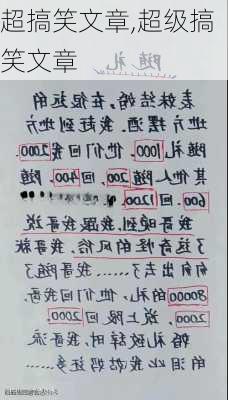 超搞笑文章,超级搞
笑文章
随礼
表妹结婚，在很远的
地方摆酒，我赶到地方
随礼1000，他们回我2000，
其他人随200，回400，随
600，回1200。
我哥晚到，我跟我哥说
了这奇怪的风俗，我哥就
去了……，我哥随了
80000的礼，他们回我哥
2000，说回上限2000
婚礼致辞时，我哥流
的泪比我姑妈还多